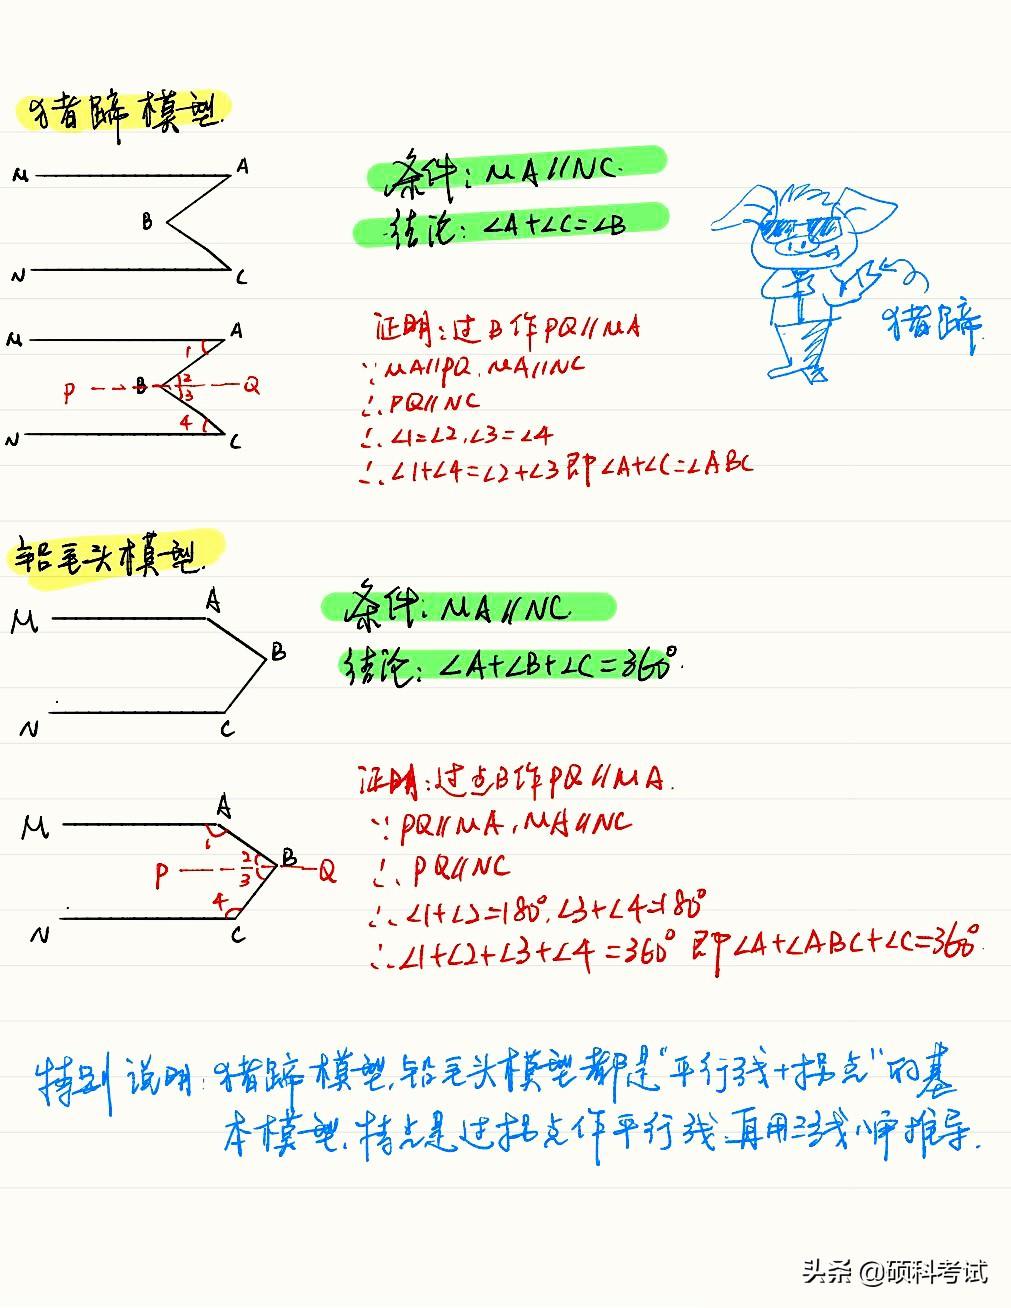 猪蹄模型.
M A
条件: MA//NC.
B
结论: ∠A+∠C=∠B
N C
猪蹄.
M A
1
P B 2 Q
3
4
N C
证明: 过B作PQ//MA
∵MA//PQ, MA//NC
∴PQ//NC
∴∠1=∠2, ∠3=∠4
∴∠1+∠4=∠2+∠3即∠A+∠C=∠ABC
铅笔头模型.
M A
条件: MA//NC
B
结论: ∠A+∠B+∠C=360°.
N C
M A
1
P 2 B Q
3
4
N C
证明: 过点B作PQ//MA.
∵PQ//MA, MA//NC
∴PQ//NC
∴∠1+∠2=180°, ∠3+∠4=180°
∴∠1+∠2+∠3+∠4=360° 即∠A+∠ABC+∠C=360°.
特别说明: 猪蹄模型, 铅笔头模型都是"平行线+拐点"的基
本模型, 特点是过拐点作平行线, 再用三线八角推导.
头条 @硕科考试